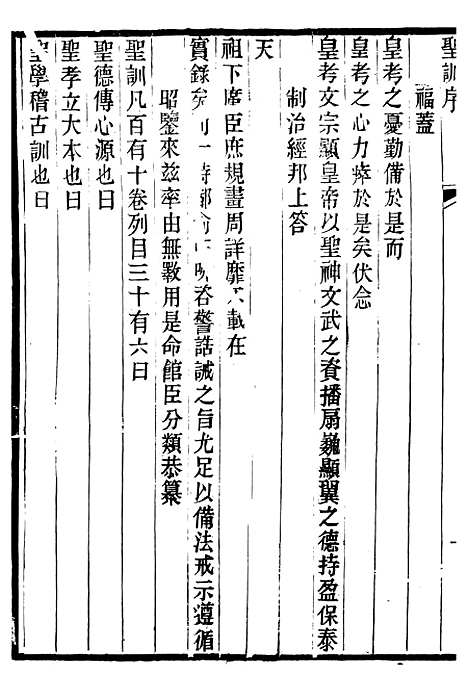 聖訓序
福蓋
皇考之憂勤備於是而
皇考之心力瘁於是矣伏念
皇考文宗顯皇帝以聖神文武之資播扇巍顯翼之德持盈保泰
制治經邦上答
天
祖下席臣庶規畫周詳靡不載在
實錄矣 一時都俞 咨警誥誡之旨尤足以備法戒示遵循
昭鑒來茲率由無斁用是命館臣分類恭纂
聖訓凡百有十卷列目三十有六曰
聖德傳心源也曰
聖孝立大本也曰
聖學稽古訓也曰